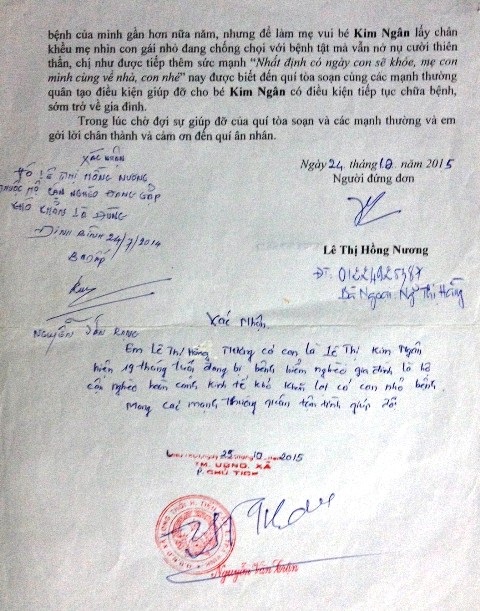 bệnh của mình gần hơn nữa năm, nhưng để làm mẹ vui bé Kim Ngân lấy chân
khều mẹ nhìn con gái nhỏ đang chống chọi với bệnh tật mà vẫn nở nụ cười thiên
thần, chị như được tiếp thêm sức mạnh “Nhất định có ngày con sẽ khỏe, mẹ con
mình cùng về nhà, con nhé” nay được biết đến quí tòa soạn cùng các mạnh thường
quân tạo điều kiện giúp đỡ cho bé Kim Ngân có điều kiện tiếp tục chữa bệnh,
sớm trở về gia đình.
Trong lúc chờ đợi sự giúp đỡ của quí tòa soạn và các mạnh thường và em
gởi lời chân thành và cảm ơn đến quí ân nhân.
Ngày 24 tháng 10 năm 2015
Người đứng đơn
Lê Thị Hồng Nương
ĐT: 01224925487
Bà Ngoại: Thị Hằng
Xác nhận
Lê Thị Hồng Nương
thuộc hộ cận nghèo đang gặp
khó khăn là đúng
24/7/2014
Nguyễn Văn
Xác Nhận
Em Lê Thị Hồng Nương có con là Lê Thị Kim Ngân
hiện 19 tháng tuổi đang bị bệnh hiểm nghèo gia đình là hộ
cận nghèo hoàn cảnh kinh tế khó khăn lại có con nhỏ bệnh.
Mong các mạnh thường quân tận tình giúp đỡ
25 10 2015
TM. UBND. XÃ
P. CHỦ TỊCH
Nguyễn Văn